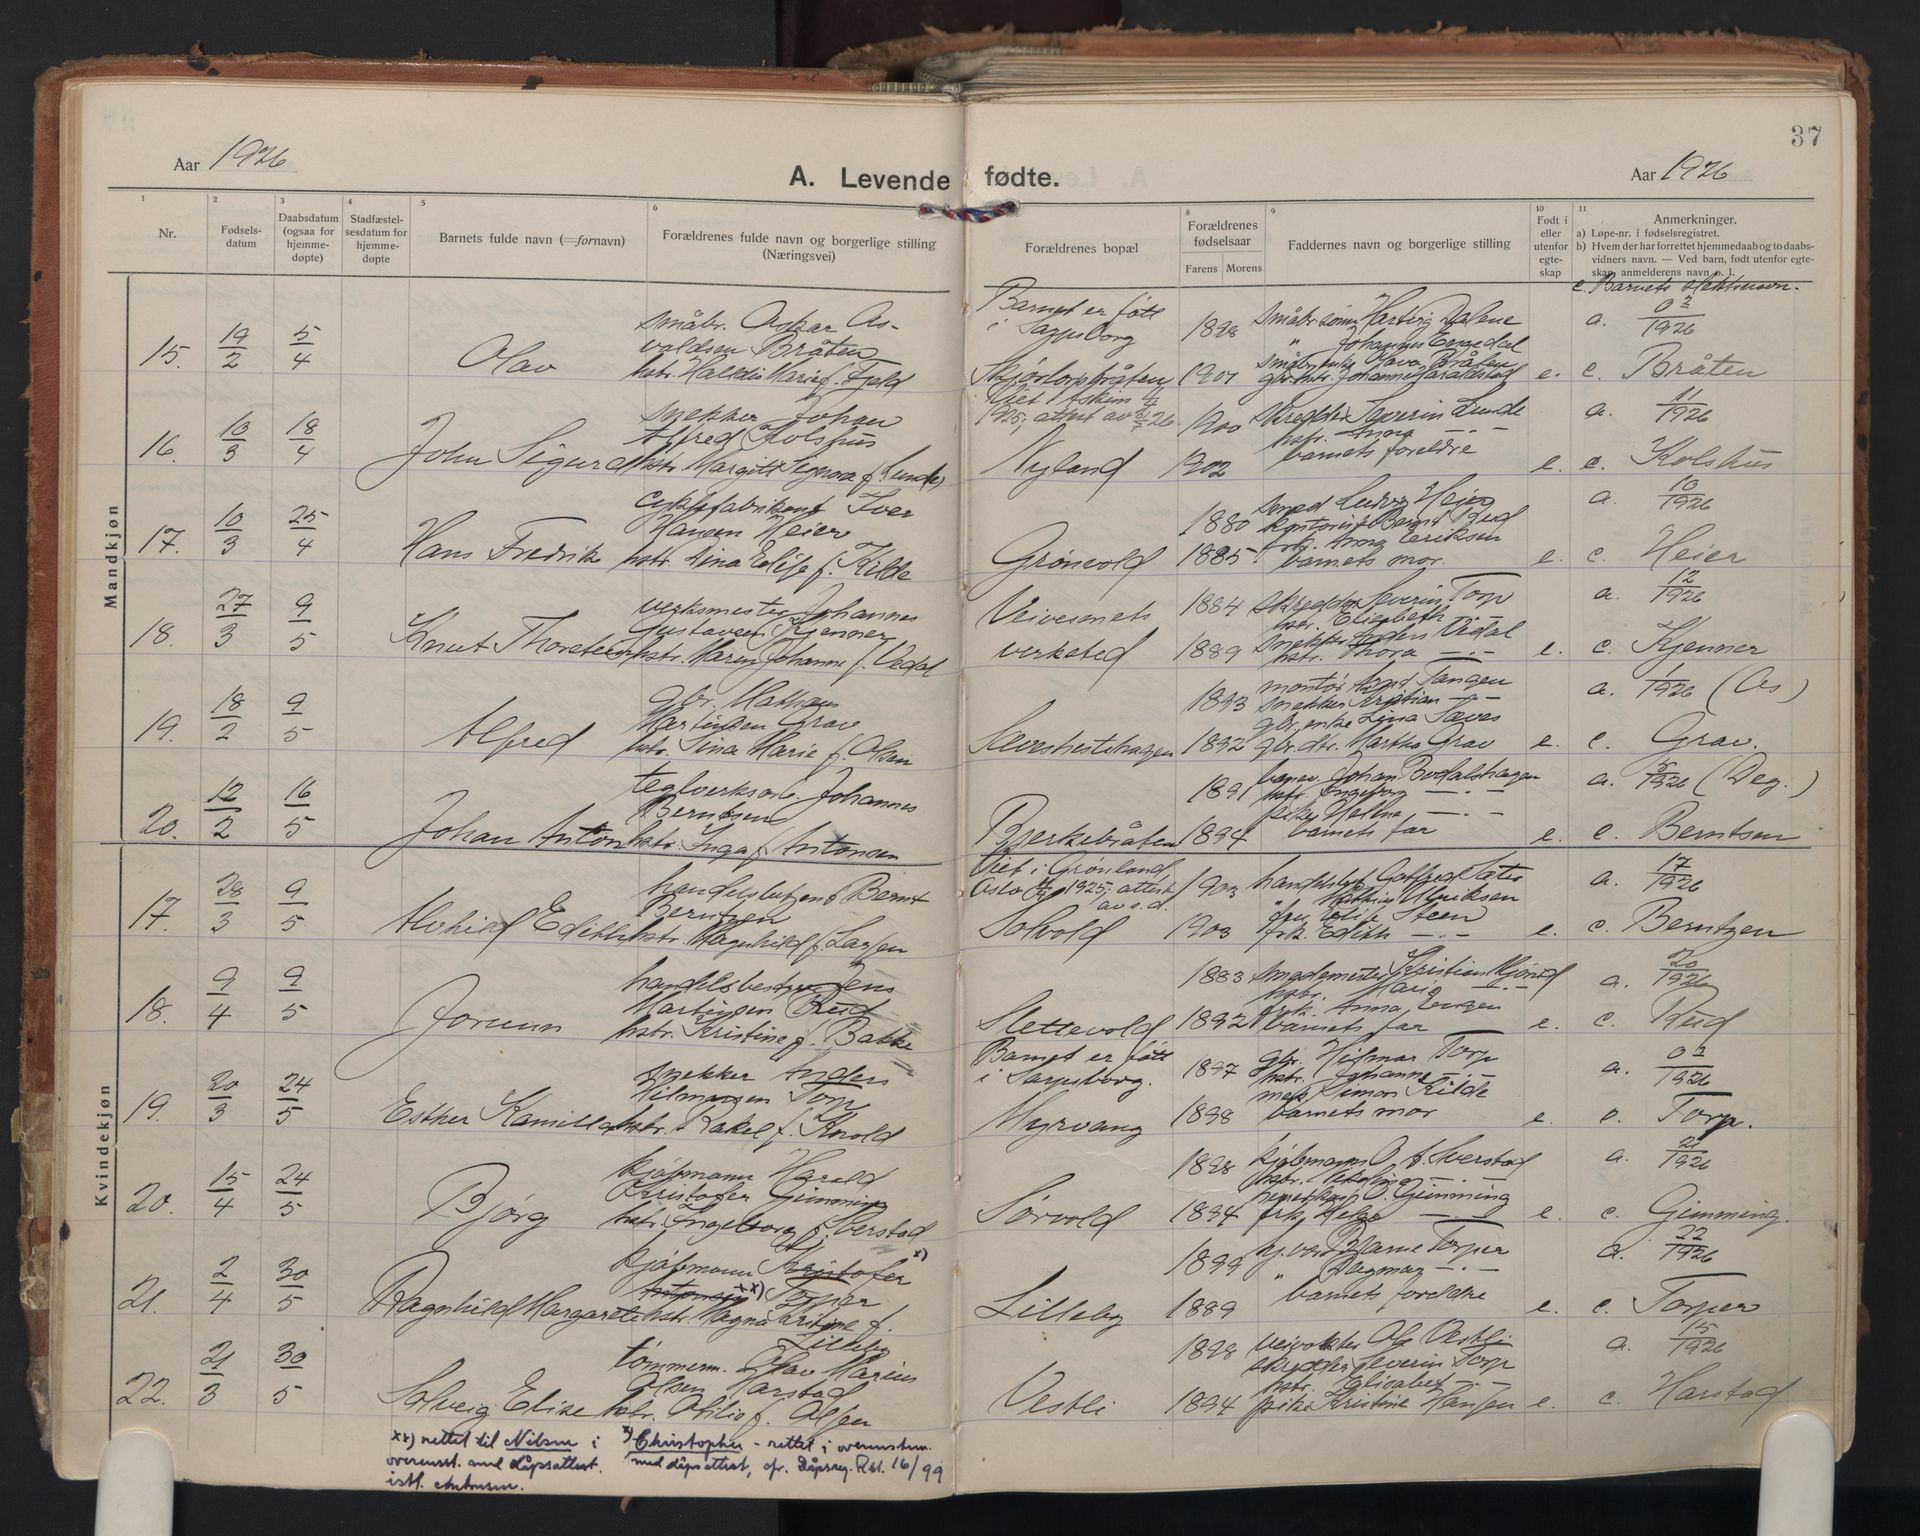 37
Aar 1926
A. Levende fødte.
Aar 1926
1
Nr.
2
Fødsels-
datum
3
Daabsdatum
(ogsaa for
hjemme-
døpte)
4
Stadfæstel-
sesdatum for
hjemme-
døpte
5
Barnets fulde navn (=fornavn)
6
Forældrenes fulde navn og borgerlige stilling
(Næringsvei)
Forældrenes bopæl
8
Forældrenes
fødselsaar
Farens Morens
9
Faddernes navn og borgerlige stilling
10
Født i
eller
utenfor
egte-
skap
11
Anmerkninger.
a) Løpe-nr. i fødselsregistret.
b) Hvem der har forrettet hjemmedaab og to daabs-
vidners navn. — Ved barn, født utenfor egte-
skap, anmelderens navn o. l.
c. Barnets slektsnavn.
Mandkjøn
15. 19/2 5/4 Olav
småbr. Oskar As-
valdsen Bråten
hstr. Halldis Marie f. Fjeld
Barnet er født
i Sarpsborg
Skjørtorpbråten
1898
1901
småbr.sønn Hartvig Dalene
" Johannes Engedal
småbr.enke Olava Bråten
gbr.hstr. Johanne Haraldstad
e.
a. 02/1926
c. Bråten
16. 10/3 18/4 John Sigurd
snekker Johan
Alfred Kolshus
hstr. Margit Signora f. Lunde
Viet i Askim
1925, attest av
Nyland
1900
1902
skredder Severin Lunde
hstr. Anna —.—
barnets foreldre
e.
a. 11/1926
c. Kolshus
17. 10/3 25/4 Hans Fredrik
cykkelfabrikant Iver
Hansen Heier
hstr. Lina Elise f. Kilde
Grønvold
1880
1885
smed Ludvig Heier
kontorist Bernt Rud
frk. Anna Eriksen
barnets mor.
e.
a. 10/1926
c. Heier
18. 27/3 9/5 Knut Thorstein
verksmester Johannes
Gustavsen Kjenner
hstr. Maren Johanne f. Vedal
Veivesenets
verksted
1884
1889
skredder Severin Torp
hstr. Elisabeth —.—
snekker Anders Vedal
hstr. Thora —.—
e.
a. 12/1926
c. Kjenner
19. 18/2 9/5 Alfred
gbr. Mathæus
Martinsen Grav
hstr. Lina Marie f. Olsen
1893
1892
montør Arnt Tangen
snekker Kristian —.—
gbr.enke Lina Sæves
gbr.dtr. Martha Grav
e.
a. 1/1926 (Ås)
c. Grav.
20. 12/2 16/5 Johan Anton
teglverksarb. Johannes
Berntsen
hstr. Inga f. Antonsen
Bjerkebråten
1891
1894
Johan Bodalshagen
hstr. Ingeborg —.—
pike Helene —.—
barnets far
e.
a. 5/1926 (Deg.)
c. Berntsen
Kvindekjøn
17. 28/3 9/5 Alvhild Edith
handelsbetjent Bernt
Berntzen
hstr. Ragnhild f. Larsen
Viet i Grønland,
Oslo 1925, attest
av s.d.
Solvold
1903
1903
handelsbet. Gotfred Sæter
" Mathias Ulriksen
fru Elise Steen
frk. Edith —.—
e.
a. 17/1926
c. Berntzen
18. 9/4 9/5 Jorunn
handelsbestyrer Jens
Martinsen Rud
hstr. Kristine f. Bakke
Slettevold
1883
1892
smedemester Kristian
hstr. Marie —.—
frk. Anna Engen
barnets far
e.
a. 20/1926
c. Rud
19. 20/3 24/5 Esther Kamilla
snekker Anders
Hilmarsen Torp
hstr. Rakel f. Knold
Barnet er født
i Sarpsborg.
Myrvang
1897
1898
gbr. Hilmar Torp
hstr. Johanne —.—
mek. Simon Kilde
barnets mor
e.
a. 03/1926
c. Torp.
20. 15/4 24/5 Bjørg
kjøbmann Harald
Kristofer Gimming
hstr. Ingeborg f. Sverstad
Sørvold
1898
1894
kjøbmann O. A. Sverstad
hstr. Nikoline —.—
O. Gimming
frk. Helga —.—
e.
a. 21/1926
c. Gimming.
21. 2/4 30/5 Ragnhild Margarete
kjøbmann Kristofer x)
Antonsen xx) Torper
hstr. Magna Kristine f.
Lilleby
Lilleby
1899
1889
Bjarne Torper
" Dagmar —.—
barnets foreldre
e.
a. 22/1926
c. Torper
22. 21/3 30/5 Solveig Elise
tømmerm. Olav Marius
Olsen Harstad
hstr. Otilie f. Olsen
Vestli
1898
1894
veivokter Ole Vestli
skredder Severin Torp
hstr. Elisabet —.—
pike Kristine Hansen
e.
a. 15/1926
c. Harstad
xx) rettet til Nilsen i
overenst. med dåpsattest.
istf. Antonsen.
x) Christopher - rettet i overenstem.
med dåpsattest, cfr. Dåpsreg. Rkl. 16/99